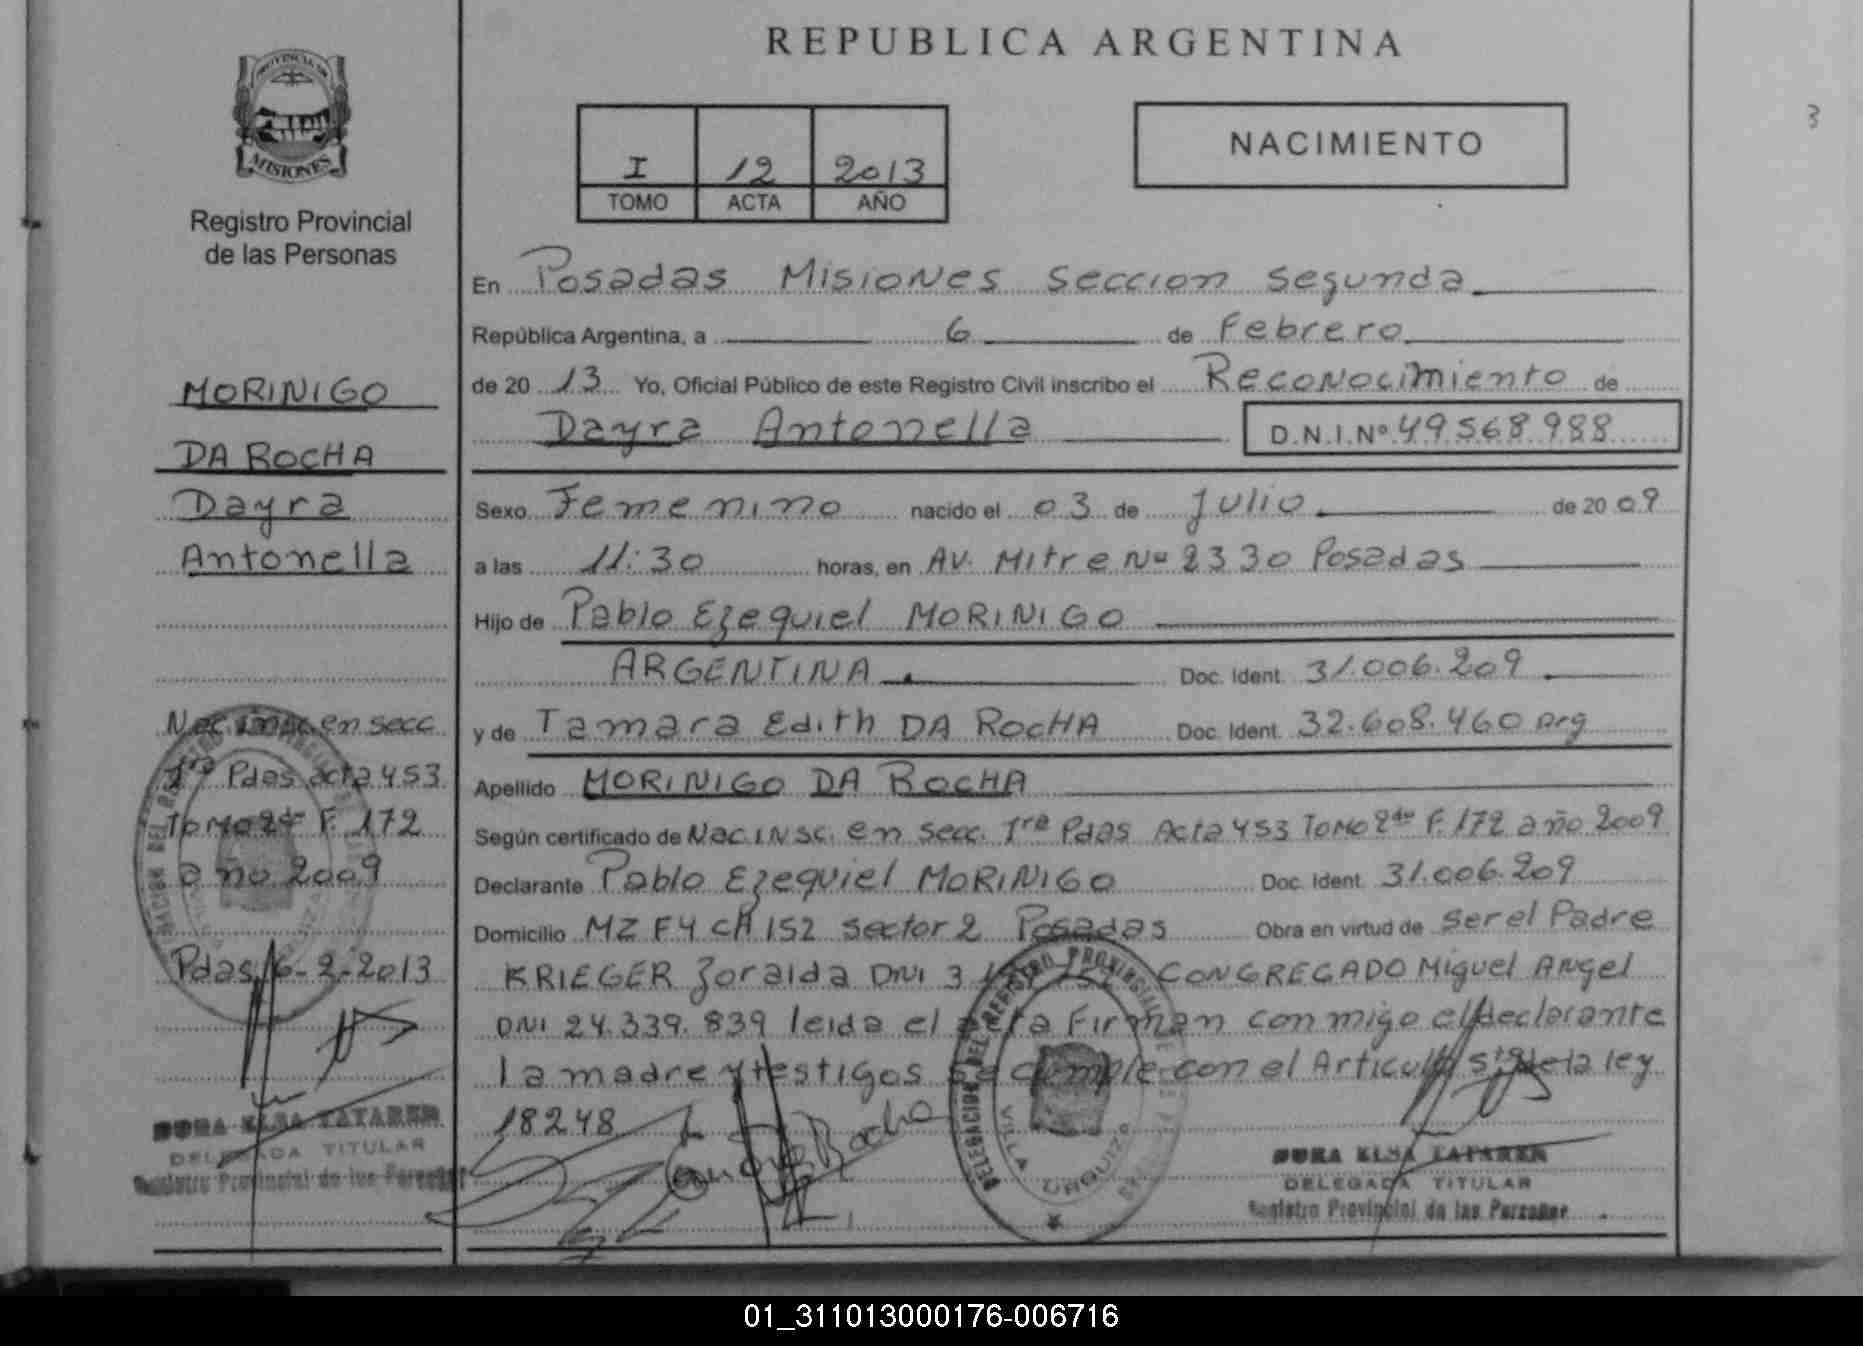 REPUBLICA ARGENTINA
PROVINCIA DE
MISIONES
Registro Provincial
de las Personas
I 12 2013
TOMO ACTA AÑO
NACIMIENTO
3
MORINIGO
DA ROCHA
Dayra
Antonella
Nac. insc. en secc
1ra Pdas acta 453
Tomo 2do F. 172
año 2009
Pdas, 6-2-2013
ELSA TATAREN
DELEGADA TITULAR
Registro Provincial de las Personas
En Posadas Misiones seccion segunda
República Argentina, a 6 de Febrero
de 2013 Yo, Oficial Público de este Registro Civil inscribo el Reconocimiento de
Dayra Antonella D.N.I.Nº 49568988
Sexo Femenino nacido el 03 de Julio de 2009
a las 11:30 horas, en AV. Mitre Nº 2330 Posadas
Hijo de Pablo Ezequiel MORINIGO
ARGENTINA Doc. Ident. 31.006.209
y de Tamara Edith DA ROCHA Doc. Ident. 32.608.460 arg
Apellido MORINIGO DA ROCHA
Según certificado de Nac. INSC. en secc. 1ra Pdas Acta 453 Tomo 2do F. 172 año 2009
Declarante Pablo Ezequiel MORINIGO Doc. Ident. 31.006.209
Domicilio MZ F4 CH 152 sector 2 Posadas Obra en virtud de ser el Padre
KRIEGER Zoraida DNI CONGREGADO Miguel Angel
DNI 24.339.839 leida el acta Firman conmigo el declarante
la madre y testigos se cumple con el Articulo 5to de la ley
18248
DELEGACION DEL REGISTRO PROVINCIAL DE LAS PERSONAS
VILLA URQUIZA
ELSA TATAREN
DELEGADA TITULAR
Registro Provincial de las Personas
01_311013000176-006716